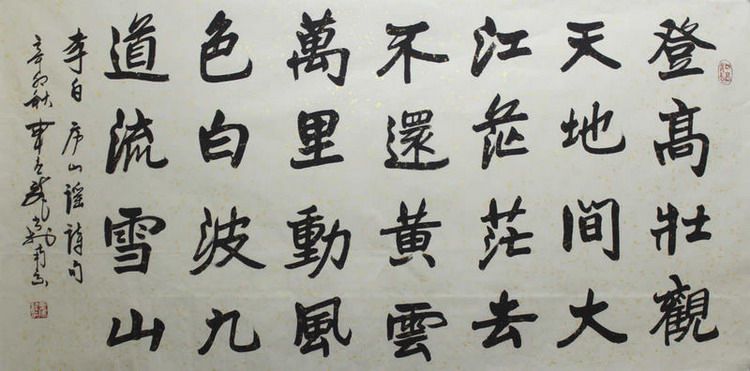 登高壯觀
天地間大
江茫茫去
不還黃雲
萬里動風
色白波九
道流雪山
李白庐山謠詩句
辛卯秋